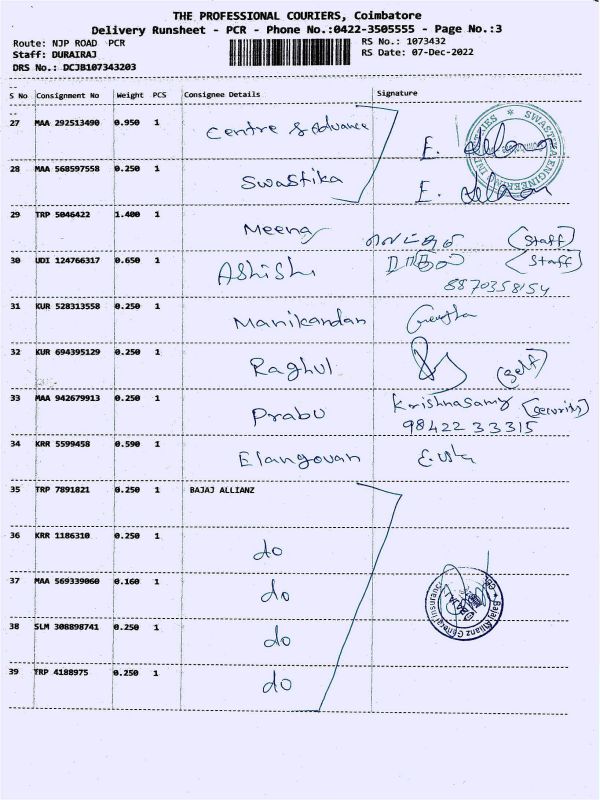 THE PROFESSIONAL COURIERS, Coimbatore
Delivery Runsheet - PCR - Phone No.:0422-3505555 - Page No.:3
Route: NJP ROAD PCR
RS No.: 1073432
Staff: DURAIRAJ
RS Date: 07-Dec-2022
DRS No.: DCJB107343203
S No Consignment No Weight PCS Consignee Details Signature
27 MAA 292513490 0.950 1 Centre & Advance E.
28 MAA 568597558 0.250 1 Swastika E.
29 TRP 5046422 1.400 1 Meena (Staff)
30 UDI 124766317 0.650 1 Ashish (Staff)
8870358154
31 KUR 528313558 0.250 1 Manikandan
32 KUR 694395129 0.250 1 Raghul (Self)
33 MAA 942679913 0.250 1 Prabu Krishnasamy (Security)
98422 33315
34 KRR 5599458 0.590 1 Elangovan
35 TRP 7891821 0.250 1 BAJAJ ALLIANZ
36 KRR 1186310 0.250 1 do
37 MAA 569339060 0.160 1 do
38 SLM 308898741 0.250 1 do
39 TRP 4188975 0.250 1 do
Bajaj Allianz General Insurance